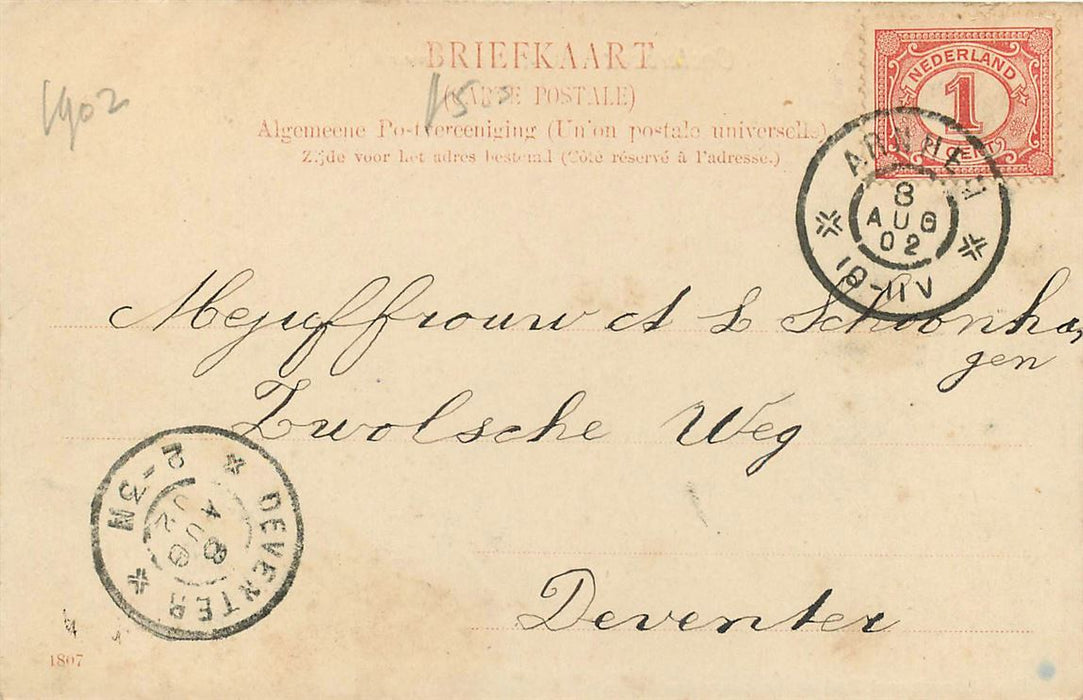 BRIEFKAART
(CARTE POSTALE)
Algemeene Postvereeniging (Union postale universelle)
Zijde voor het adres bestemd (Côté réservé à l'adresse.)
1902
NEDERLAND
1
CENT
ARNHEM
8
AUG
02
10-11V
Mejuffrouw A L Schoonha
gen
Zwolsche Weg
Deventer
DEVENTER
8
AUG
02
2-3N
1807